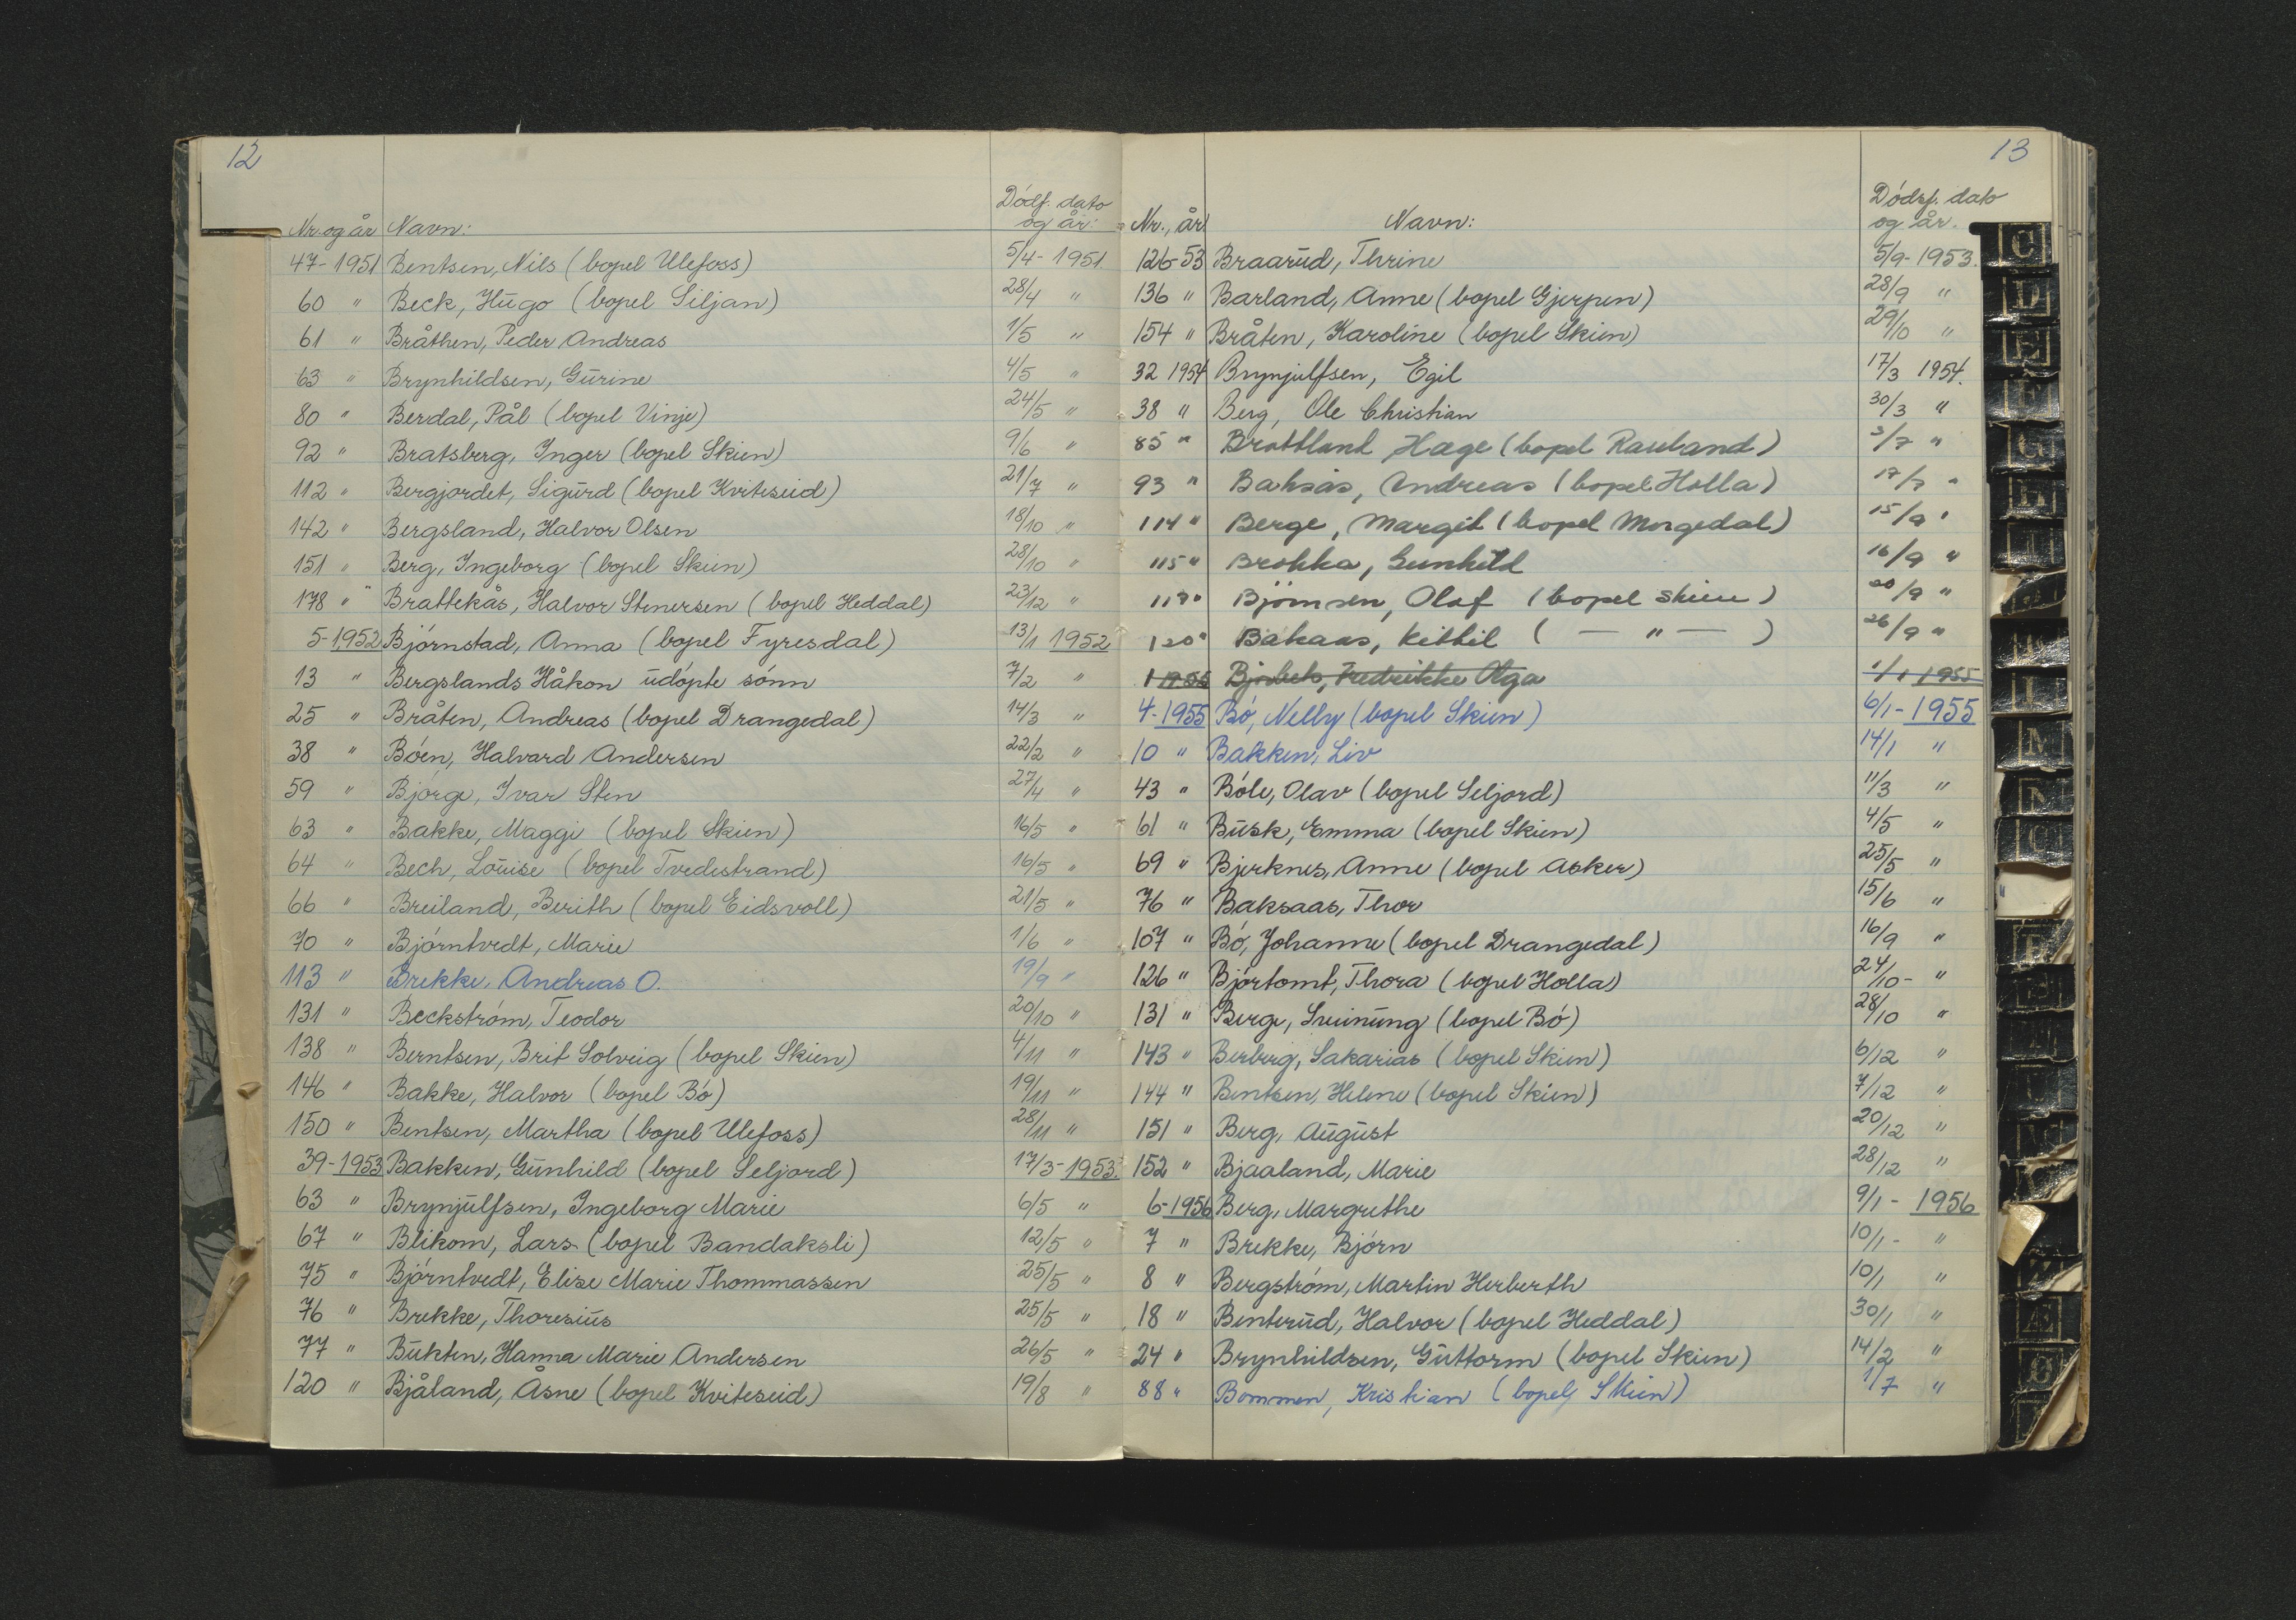 12
Dódf. dato
Nr. og år Navn: og år:
47-1951 Bentsen, Nils (bopel Ulefoss) 5/4-1951
60 " Beck, Hugo (bopel Siljan) 28/4 "
61 " Bråthen, Peder Andreas 1/5 "
63 " Brynhildsen, Gurine 4/5 "
80 " Berdal, Pål (bopel Vinje) 24/5 "
92 " Bratsberg, Inger (bopel Skien) 9/6 "
112 " Bergjordet, Sigurd (bopel Kviteseid) 21/7 "
142 " Bergsland, Halvor Olsen 18/10 "
151 " Berg, Ingeborg (bopel Skien) 28/10 "
178 " Brattekås, Halvor Stenersen (bopel Heddal) 23/12 "
5-1952 Björnstad, Anna (bopel Fyresdal) 13/1 1952
13 " Bergslands Håkon udópte sónn 7/2 "
25 " Bråten, Andreas (bopel Drangedal) 14/3 "
38 " Bóen, Halvard Andersen 22/2 "
59 " Bjórge, Ivar Sten 27/4 "
63 " Bakke, Maggi (bopel Skien) 16/5 "
64 " Bech, Louise (bopel Tvedestrand) 16/5 "
66 " Breiland, Berith (bopel Eidsvoll) 21/5 "
70 " Bjórntvedt, Marie 1/6 "
113 " Brekke, Andreas O. 19/9 "
131 " Beckstróm, Teodor 20/10 "
138 " Berntsen, Brit Solveig (bopel Skien) 4/11 "
146 " Bakke, Halvor (bopel Bó) 19/11 "
150 " Bentsen, Martha (bopel Ulefoss) 28/11 "
39-1953 Bakken, Gunhild (bopel Seljord) 17/3-1953.
63 " Brynjulfsen, Ingeborg Marie 6/5 "
67 " Blikom, Lars (bopel Bandaksli) 12/5 "
75 " Bjórntvedt, Elise Marie Thommassen 25/5 "
76 " Brekke, Thoresius 25/5 "
77 " Bukten, Hanna Marie Andersen 26/5 "
120 " Bjåland, Åsne (bopel Kviteseid) 19/8 "
13
Dódsf. dato
Nr., år Navn: og år.
126-53 Braarud, Thrine 5/9-1953.
136 " Barland, Anne (bopel Gjerpen) 28/9 "
154 " Bråten, Karoline (bopel Skien) 29/10 "
32 1954 Brynjulfsen, Egil 17/3 1954.
38 " Berg, Ole Christian 30/3 "
85 " Brattland Hæge (bopel Rauland) 3/7 "
93 " Baksås, Andreas (bopel Holla) 17/7 "
114 " Berge, Margit (bopel Morgedal) 15/9 "
115 " Brokka, Gunhild 16/9 "
117 " Björnsen, Olaf (bopel Skien) 20/9 "
120 " Bakaas, Kittil ( — " — ) 26/9 "
1 1955 Fredrikke Olga 1/1 1955
4-1955 Bó, Nelly (bopel Skien) 6/1-1955
10 " Bakken, Liv 14/1 "
43 " Bóle, Olav (bopel Seljord) 11/3 "
61 " Busk, Emma (bopel Skien) 4/5 "
69 " Bjerknes, Anne (bopel Asker) 25/5 "
76 " Baksaas, Thor 15/6 "
107 " Bó, Johanne (bopel Drangedal) 16/9 "
126 " Bjórtomt, Thora (bopel Holla) 24/10- "
131 " Berge, Sveinung (bopel Bó) 28/10 "
143 " Berberg, Sakarias (bopel Skien) 6/12 "
144 " Bentsen, Helene (bopel Skien) 7/12 "
151 " Berg, August 20/12 "
152 " Bjaaland, Marie 28/12 "
6-1956 Berg, Margrethe 9/1-1956
7 " Brekke, Bjórn 10/1- "
8 " Bergstróm, Martin Herberth 10/1 "
18 " Benterud, Halvor (bopel Heddal) 30/1 "
24 " Brynhildsen, Guttorm (bopel Skien) 14/2 "
88 " Bommen, Kristian (bopel Skien) 1/7 "
C
D
E
F
G
H
I
M
N
O
P
Æ
Ø